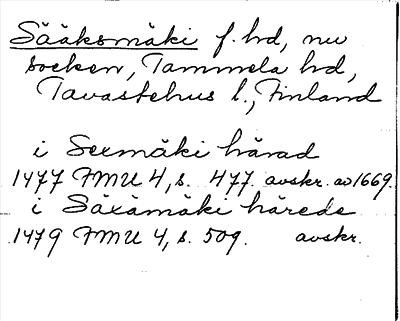 Sääksmäki f. hd, nu
socken, Tammela hd,
Tavastehus l., Finland
i Sexmäki härad
1477 FMU 4, s. 477. avskr. av 1669.
i Säxämäki härede
1479 FMU 4, s. 509. avskr.